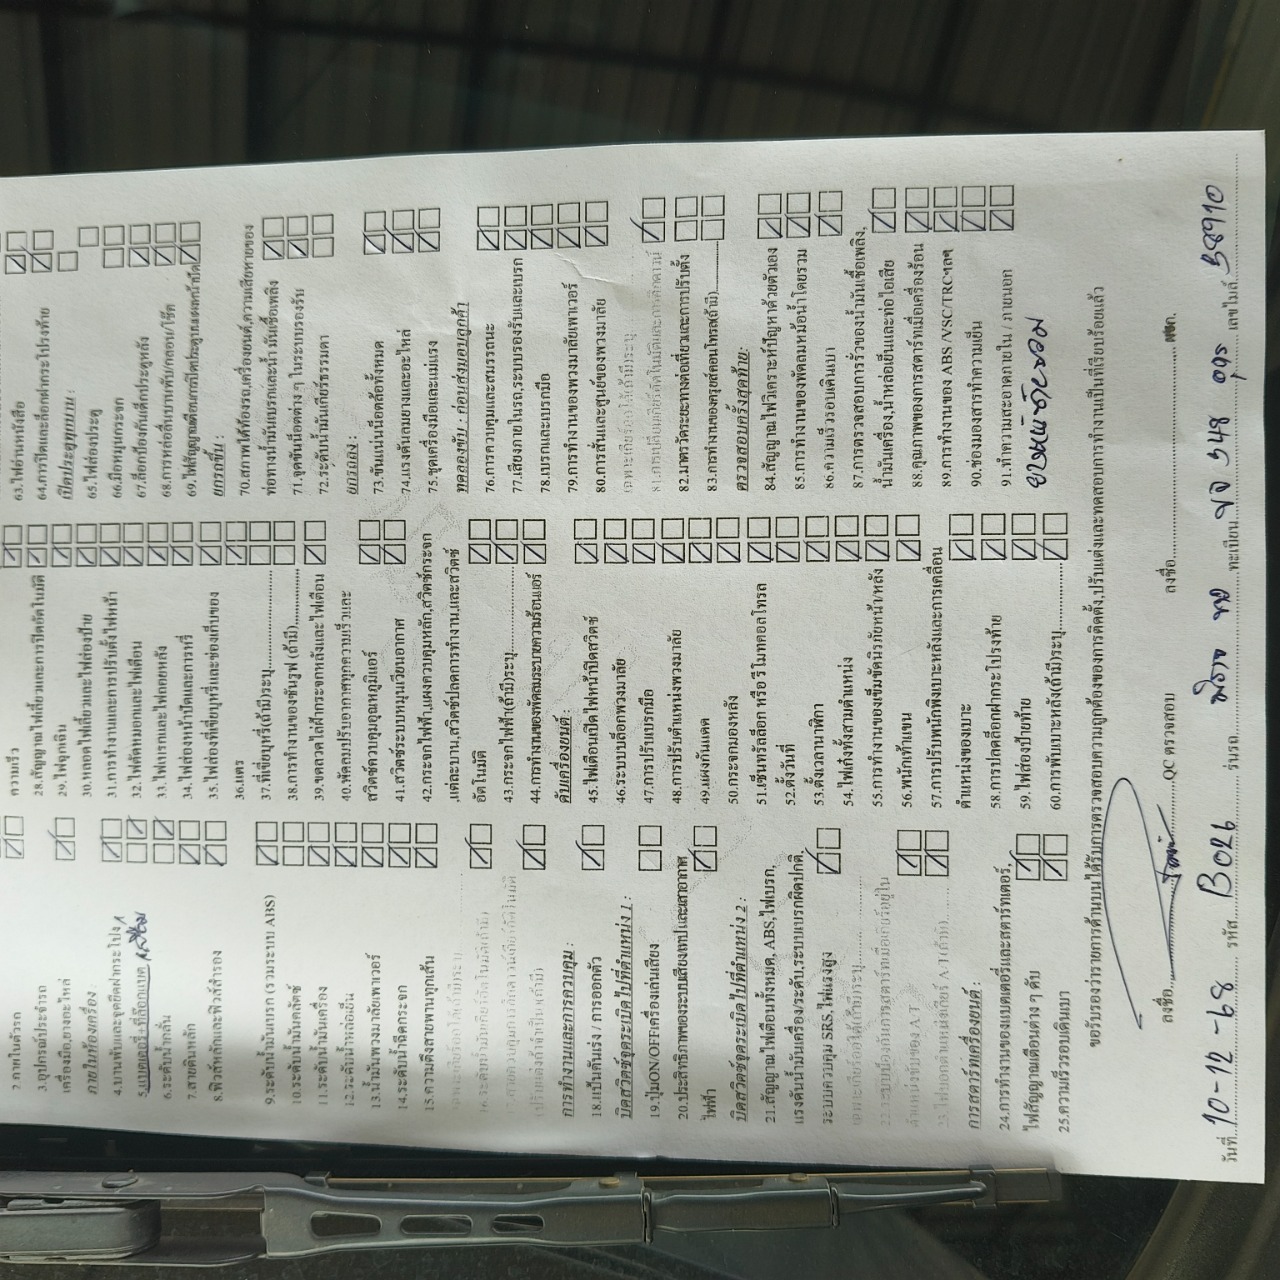 2. ภายในตัวรถ
3.อุปกรณ์ประจำรถ
เครื่องมือ,ยางอะไหล่
ภายในห้องเครื่อง :
4.บานพับและจุดยึดฝากระโปรง
5.แบตเตอรี่+ที่ล๊อกแบต
6.ระดับน้ำกลั่น
7.สายดินหลัก
8.ฟิวส์หลักและฟิวส์สำรอง
9.ระดับน้ำมันเบรก (รวมระบบ ABS)
10.ระดับน้ำมันคลัตช์
11.ระดับน้ำมันเครื่อง
12.ระดับน้ำหล่อเย็น
13.น้ำมันพวงมาลัยเพาเวอร์
14.ระดับน้ำฉีดกระจก
15.ความตึงสายพานทุกเส้น
การทำงานและการควบคุม :
18.แป้นคันเร่ง / การออกตัว
บิดสวิตช์จุดระเบิดไปที่ตำแหน่ง 1 :
19.ปุ่มON/OFFเครื่องเล่นเสียง
20.ประสิทธิภาพของระบบเสียงเทป และเสาอากาศ
ไฟฟ้า
บิดสวิตช์จุดระเบิดไปที่ตำแหน่ง 2 :
21.สัญญาณไฟเตือนทั้งหมด, ABS,ไฟเบรก,
แรงดันน้ำมันเครื่อง/ระดับ,ระบบเบรกผิดปกติ,
ระบบควบคุม SRS,ไฟแรงสูง
การสตาร์ทเครื่องยนต์ :
24.การทำงานของแบตเตอรี่และสตาร์ทเตอร์,
ไฟสัญญาณเตือนต่าง ๆ ดับ
25.ความเร็วรอบเดินเบา
ความเร็ว
28.สัญญาณไฟเลี้ยวและการปิดอัตโนมัติ
29.ไฟฉุกเฉิน
30.หลอดไฟเลี้ยวและไฟส่องป้าย
31.การทำงานและการปรับตั้งไฟหน้า
32.ไฟตัดหมอกและไฟเตือน
33.ไฟเบรกและไฟถอยหลัง
34.ไฟส่องหน้าปัดและการหรี่
35.ไฟส่องที่เขี่ยบุหรี่และช่องเก็บของ
36.แตร
37.ที่เขี่ยบุหรี่(ถ้ามี)ระบุ
38.การทำงานของซันรูฟ (ถ้ามี)
39.ขดลวดไล่ฝ้ากระจกหลังและไฟเตือน
40.พัดลมปรับอากาศทุกความเร็วและ
สวิตช์ควบคุมอุณหภูมิแอร์
41.สวิตช์ระบบหมุนเวียนอากาศ
42.กระจกไฟฟ้า,แผงควบคุมหลัก,สวิตช์กระจก
,แต่ละบาน,สวิตช์ปลดการทำงาน,และสวิตช์
อัตโนมัติ
43.กระจกไฟฟ้า(ถ้ามี)ระบุ
44.การทำงานของพัดลมระบายความร้อนแอร์
ดับเครื่องยนต์ :
45.ไฟเตือนเปิดไฟหน้าปิดสวิตช์
46.ระบบบล็อกพวงมาลัย
47.การปรับเบรกมือ
48.การปรับตำแหน่งพวงมาลัย
49.แผงกันแดด
50.กระจกมองหลัง
51.เซ็นทรัลล็อก หรือ รีโมทคอลโทรล
52.ตั้งวันที่
53.ตั้งเวลานาฬิกา
54.ไฟเก๋งทั้งสามตำแหน่ง
55.การทำงานของเข็มขัดนิรภัยหน้า/หลัง
56.พนักเท้าแขน
57.การปรับพนักพิงเบาะหลังและการเคลื่อน
ตำแหน่งของเบาะ
58.การปลดล็อกฝากระโปรงท้าย
59.ไฟส่องป้ายท้าย
60.การพับเบาะหลัง(ถ้ามี)ระบุ
63.ไฟอ่านหนังสือ
64.การปิดและล็อกฝากระโปรงท้าย
เปิดประตูทุกบาน :
65.ไฟส่องประตู
66.มือหมุนกระจก
67.ล็อกป้องกันเด็กประตูหลัง
68.การหล่อลื่นบานพับ/กลอน/โช๊ค
ยกรถขึ้น :
70.สภาพใต้ท้องรถ,เครื่องยนต์,ความเสียหายของ
ท่อทางน้ำมันเบรกและน้ำมันเชื้อเพลิง
71.จุดขันน็อตต่าง ๆ ในระบบรองรับ
72.ระดับน้ำมันเกียร์ธรรมดา
ยกรถลง :
73.ขันแน่นน็อตล้อทั้งหมด
74.แรงดันลมยางและอะไหล่
75.ชุดเครื่องมือและแม่แรง
ทดลองขับ : ก่อนส่งมอบลูกค้า
76.การควบคุมและสมรรถนะ
77.เสียงภายในรถ,ระบบรองรับและเบรก
78.เบรกและเบรกมือ
79.การทำงานของพวงมาลัยเพาเวอร์
80.การสั่นและศูนย์ของพวงมาลัย
82.มาตรวัดระยะทางต่อเที่ยวและการปรับตั้ง
83.การทำงานของครูยส์คอนโทรส(ถ้ามี)
ตรวจสอบครั้งสุดท้าย:
84.สัญญาณไฟวิเคราะห์ปัญหาด้วยตัวเอง
85.การทำงานของพัดลมหม้อน้ำโดยรวม
86.ความเร็วรอบเดินเบา
87.การตรวจสอบการรั่วของน้ำมันเชื้อเพลิง,
น้ำมันเครื่อง,น้ำหล่อเย็นและท่อไอเสีย
88.คุณภาพของการสตาร์ทเมื่อเครื่องร้อน
89.การทำงานของ ABS /VSC/TRCฯลฯ
90.ช่องมองสารทำความเย็น
91.ทำความสะอาดภายใน / ภายนอก
ขอรับรองว่ารายการด้านบนได้รับการตรวจสอบความถูกต้องของการติดตั้ง,ปรับแต่งและทดสอบการทำงานเป็นที่เรียบร้อยแล้ว
ลงชื่อ QC ตรวจสอบ ลงชื่อ
วันที่ 10-12-68 รหัส B026 รุ่นรถ ทะเบียน เลขไมล์ 58910